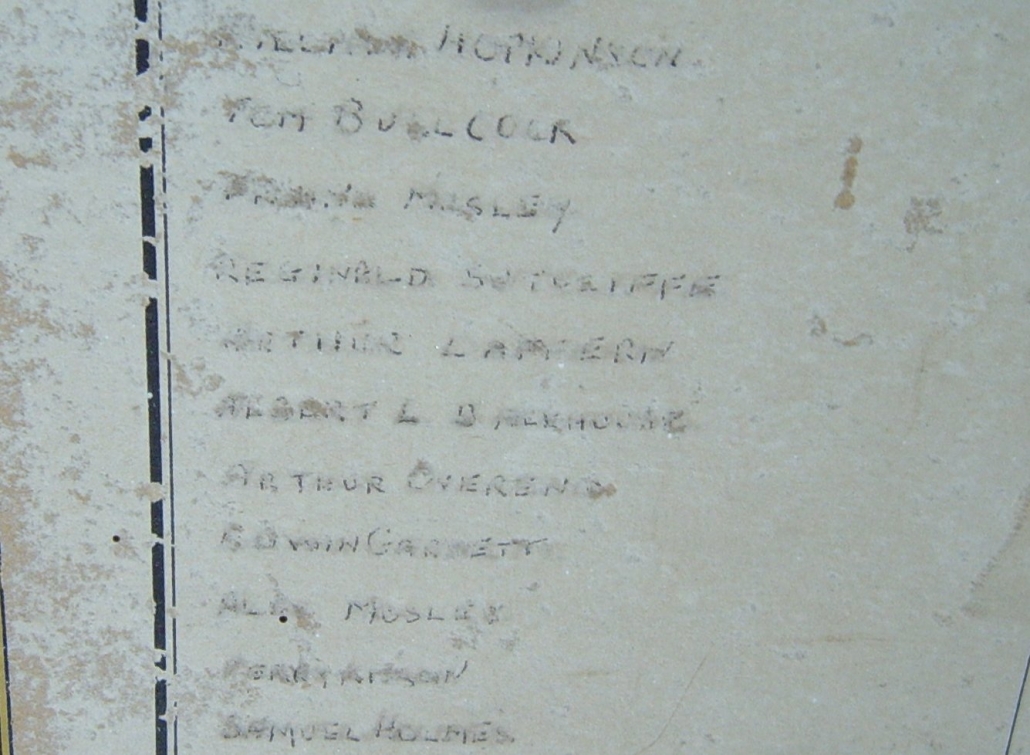 HOPKINSON.
TOM BULLCOCK
MOSLEY
REGINALD SUTCLIFFE
ARTHUR LAMBERN
ALBERT L BACKHOUSE
ARTHUR OVEREND
EDWIN GARNETT
MOSLEY
SAMUEL HOLMES